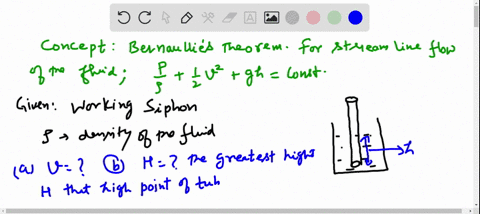 Concept: Bernaullie's Theorem. For stream line flow
of the fluid; P/ρ + 1/2 v² + gh = const.
Given: Working Siphon
ρ → density of the fluid
(a) v=? (b) H=? The greatest hight
H that high point of tub
h